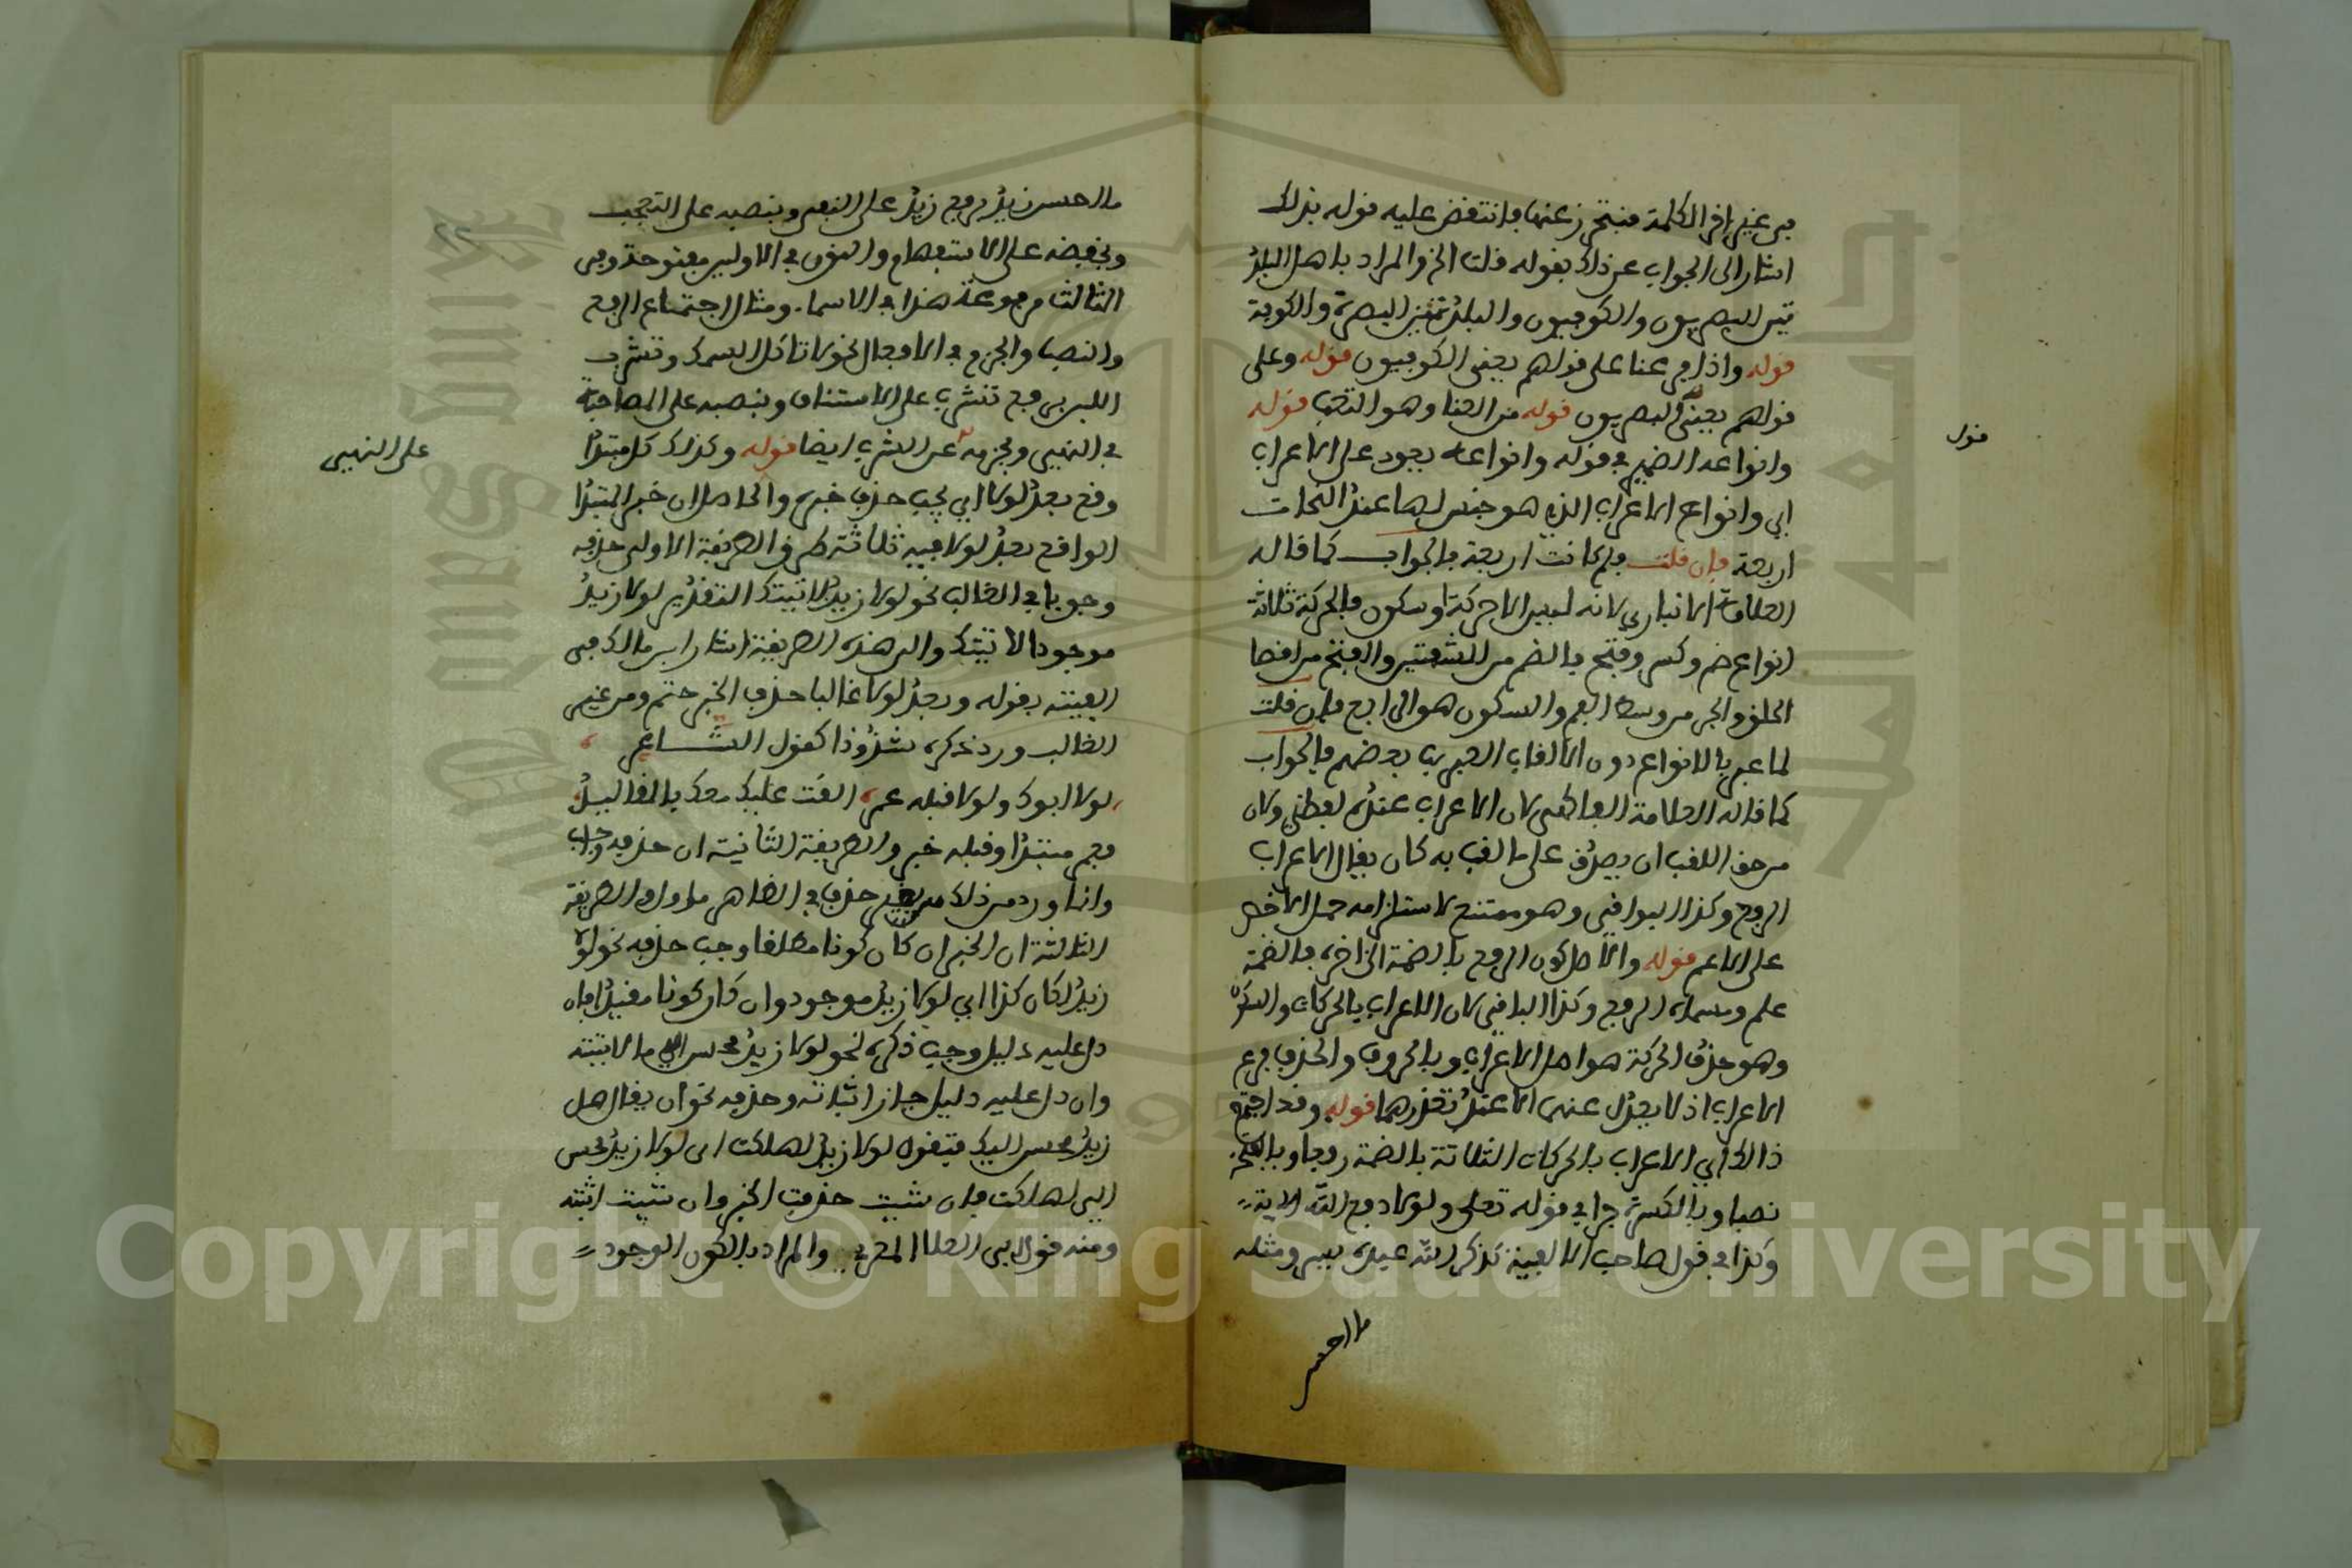 في غير اخر الكلمة فيتحرز عنها فانتقض عليه قوله بذلك
اشار الى الجواب عن ذلك بقوله قلت الخ والمراد باهل البلد
تين البصريون والكوفيون والبلدتين البصرة والكوفة
قوله واذا فرعنا على قولهم يعني الكوفيون قوله وعلى
قول
قولهم يعني البصريون قوله من العنا وهو التعب قوله
وانواعه الضمير في قوله وانواعه يعود على الاعراب
اي وانواع الاعراب الذي هو جنس لها عند النحات
اربعة فان قلت فلم كانت اربعة فالجواب كما قاله
العلامة الانباري لانه ليس الا حركة او سكون فالحركة ثلاثة
انواع ضم وكسر وفتح فالضم من الشفتين والفتح من اقصا
الحلق والجر من وسط الفم والسكون هو الرابع فان قلت
لما عبر بالانواع دون الالقاب بعضهم فالجواب
كما قاله العلامة الفاكهي لان الاعراب عنده لفظي ولان
من حق اللقب ان يصدق على ما لقب به كان يقال الاعراب
الرفع وكذا البواقي وهو ممتنع لاستلزامه حمل الاخص
على الاعم قوله والاصل كون الرفع بالضمة الى اخره فالضمة
علم ومسماه الرفع وكذا الباقي لان الاعراب بالحركات والسكون
وهو حذف الحركة هو اصل الاعراب وبالحروف والحذف فرع
الاعراب اذ لا يعدل عنهما الا عند تعذرهما قوله وقد اجتمع
ذالك اي الاعراب بالحركات الثلاثة بالضمة رفعا وبالفتحة
نصبا وبالكسرة جرا في قوله تعلى ولولا دفع الله الاية
وكذا في قول صاحب الالفية بذكر الله عبده يسر ومثله
ما احسن
ما احسن زيد برفع زيد على النفي وبنصبه على التعجب
وبخفضه على الاستفهام والنون في الاولين مفتوحة وفي
الثالث مرفوعة هذا في الاسما. ومثال اجتماع الرفع
والنصب والجزم في الافعال نحو لا تاكل السمك وتشرب
اللبن برفع تشرب على الاستئناف وبنصبه على المصاحبة
في النهي وبجزمه عن الشرب ايضا قوله وكذلك كل مبتدا
على النهي
وقع بعد لولا اي يجب حذف خبره والحاصل ان خبر المبتدا
الواقع بعد لولا فيه ثلاثة طرق الطريقة الاولى حذفه
وجوبا في الغالب نحو لولا زيد لاتيتك التقدير لولا زيد
موجود لاتيتك والى هذه الطريقة اشار ابن مالك في
الفيته بقوله وبعد لولا غالبا حذف الخبر حتم ومن غير
الغالب ورد ذكره شذوذا كقول الشاعر
لولا ابوك ولولا قبله عمر القت عليك معد بالمقاليد
فعمر مبتدا وقبله خبر والطريقة الثانية ان حذفه واجب
وانما ورد من ذلك بغير حذف في الظاهر ماول والطريقة
الثالثة ان الخبر ان كان كونا مطلقا وجب حذفه نحو لولا
زيد لكان كذا اي لولا زيد موجود وان كان كونا مقيدا فان
دل عليه دليل وجب ذكره نحو لولا زيد محسن الي ما اتيته
وان دل عليه دليل جاز اثباته وحذفه نحو ان يقال هل
زيد محسن اليك فتقول لولا زيد لهلكت اي لولا زيد محسن
الي لهلكت فان شيت حذفت الخبر وان شيت اثبته
ومنه قول ابي العلا المعري .. والمراد بالكون الوجود